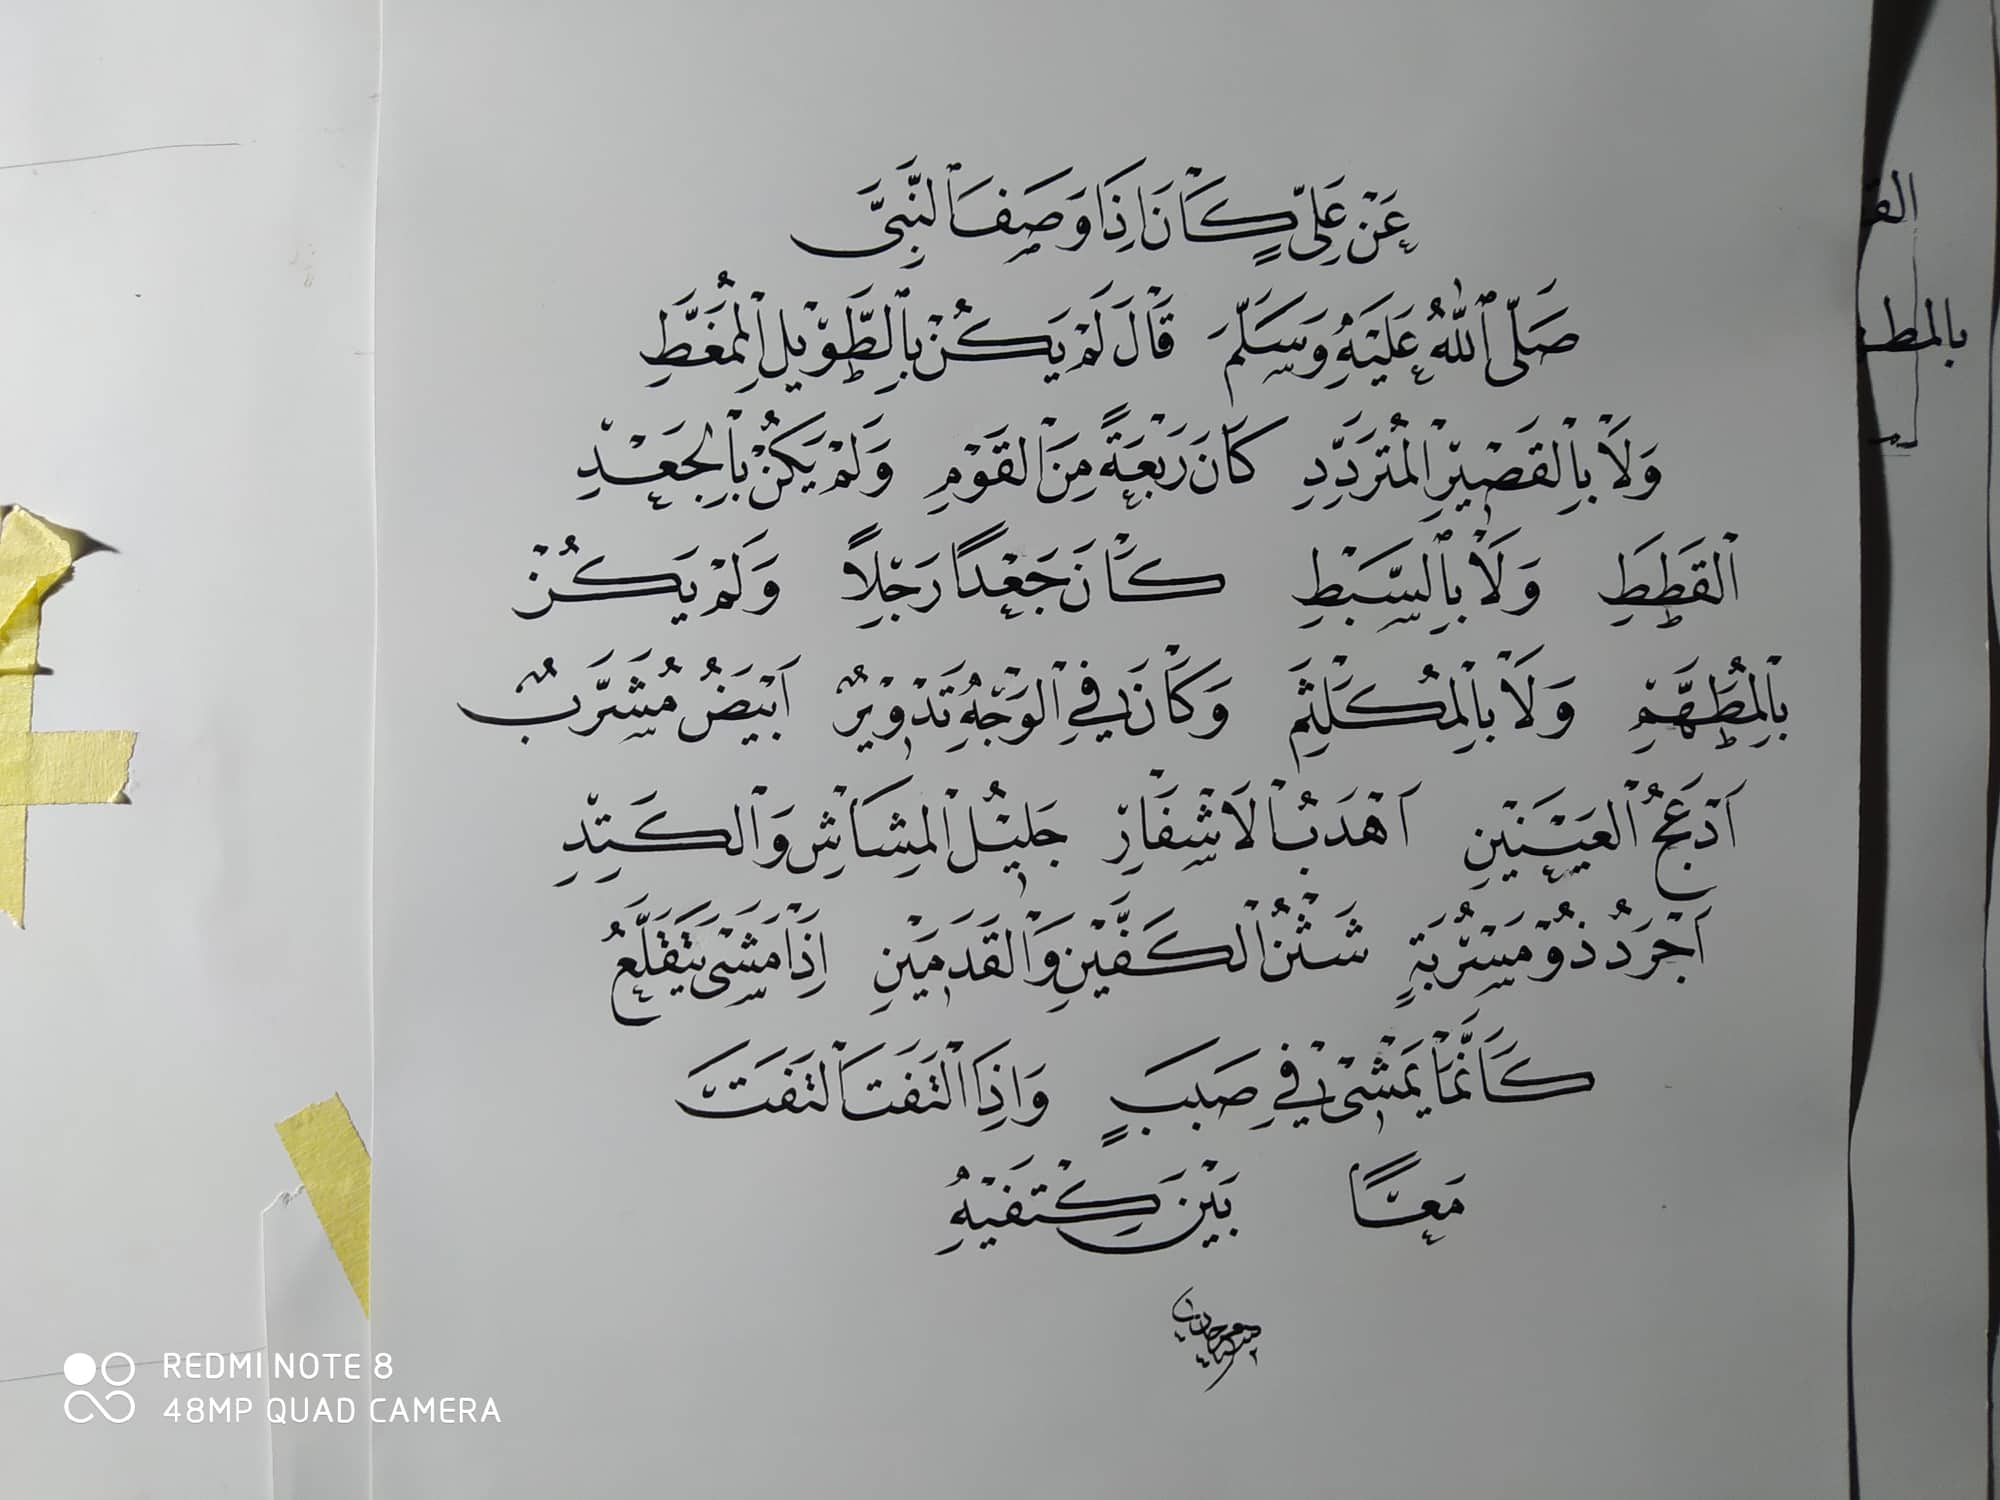 عَنْ عَلِيٍّ كَانَ إِذَا وَصَفَ النَّبِيَّ
صَلَّى اللهُ عَلَيْهِ وَسَلَّمَ قَالَ لَمْ يَكُنْ بِالطَّوِيْلِ الْمُمَغَّطِ
وَلَا بِالْقَصِيْرِ الْمُتَرَدِّدِ كَانَ رَبْعَةً مِنَ الْقَوْمِ وَلَمْ يَكُنْ بِالْجَعْدِ
الْقَطَطِ وَلَا بِالسَّبْطِ كَانَ جَعْدًا رَجِلًا وَلَمْ يَكُنْ
بِالْمُطَهَّمِ وَلَا بِالْمُكَلْثَمِ وَكَانَ فِي الْوَجْهِ تَدْوِيْرٌ اَبْيَضُ مُشَرَّبٌ
اَدْعَجُ الْعَيْنَيْنِ اَهْدَبُ الْاَشْفَارِ جَلِيْلُ الْمُشَاشِ وَالْكَتِدِ
اَجْرَدُ ذُوْ مَسْرُبَةٍ شَثْنُ الْكَفَّيْنِ وَالْقَدَمَيْنِ اِذَا مَشَى يَتَقَلَّعُ
كَاَنَّمَا يَمْشِيْ فِي صَبَبٍ وَاِذَا الْتَفَتَ الْتَفَتَ
مَعًا بَيْنَ كَتِفَيْهِ
القـ
بالمطـ
REDMI NOTE 8
48MP QUAD CAMERA